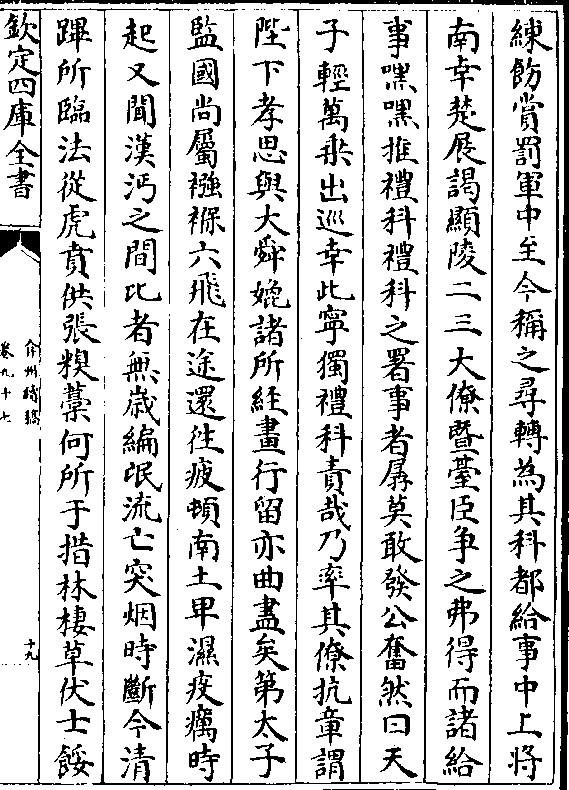 練飭賞罰軍中至今稱之尋轉為其科都給事中上將
南幸楚展謁顯陵二三大僚暨臺臣争之弗得而諸給
事嘿嘿推禮科禮科之署事者孱莫敢發公奮然曰天
子輕萬乗出巡幸此寧獨禮科責哉乃率其僚抗章謂
陛下孝思與大舜媲諸所経畫行留亦曲盡矣第太子
監國尚屬襁褓六飛在途還徃疲頓南土早濕疫癘時
起又聞漢沔之間比者無歲編氓流亡突烟時斷今清
蹕所臨法從虎賁供張糗藁何所于措林棲草伏士餒
欽定四庫全書
弇州續稿
卷九十七
十九